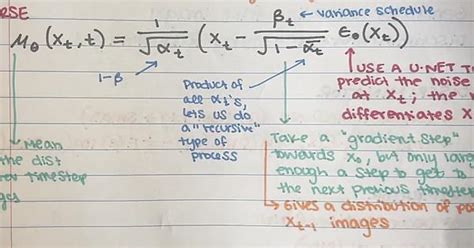 RSE
β_t ← variance schedule
μ_θ(x_t, t) = 1/√α_t (x_t - β_t/√1-ᾱ_t ε_θ(x_t))
1-β
Product of
all α_t's,
lets us do
a "recursive"
type of
process
USE A U-NET T
predict the noise
at x_t; the
differentiates x
Mean
the dist
timestep
ges
Take a "gradient step"
towards x_0, but only lar
enough a step to get to
the next previous timestep
→ Gives a distribution of po
x_t-1 images